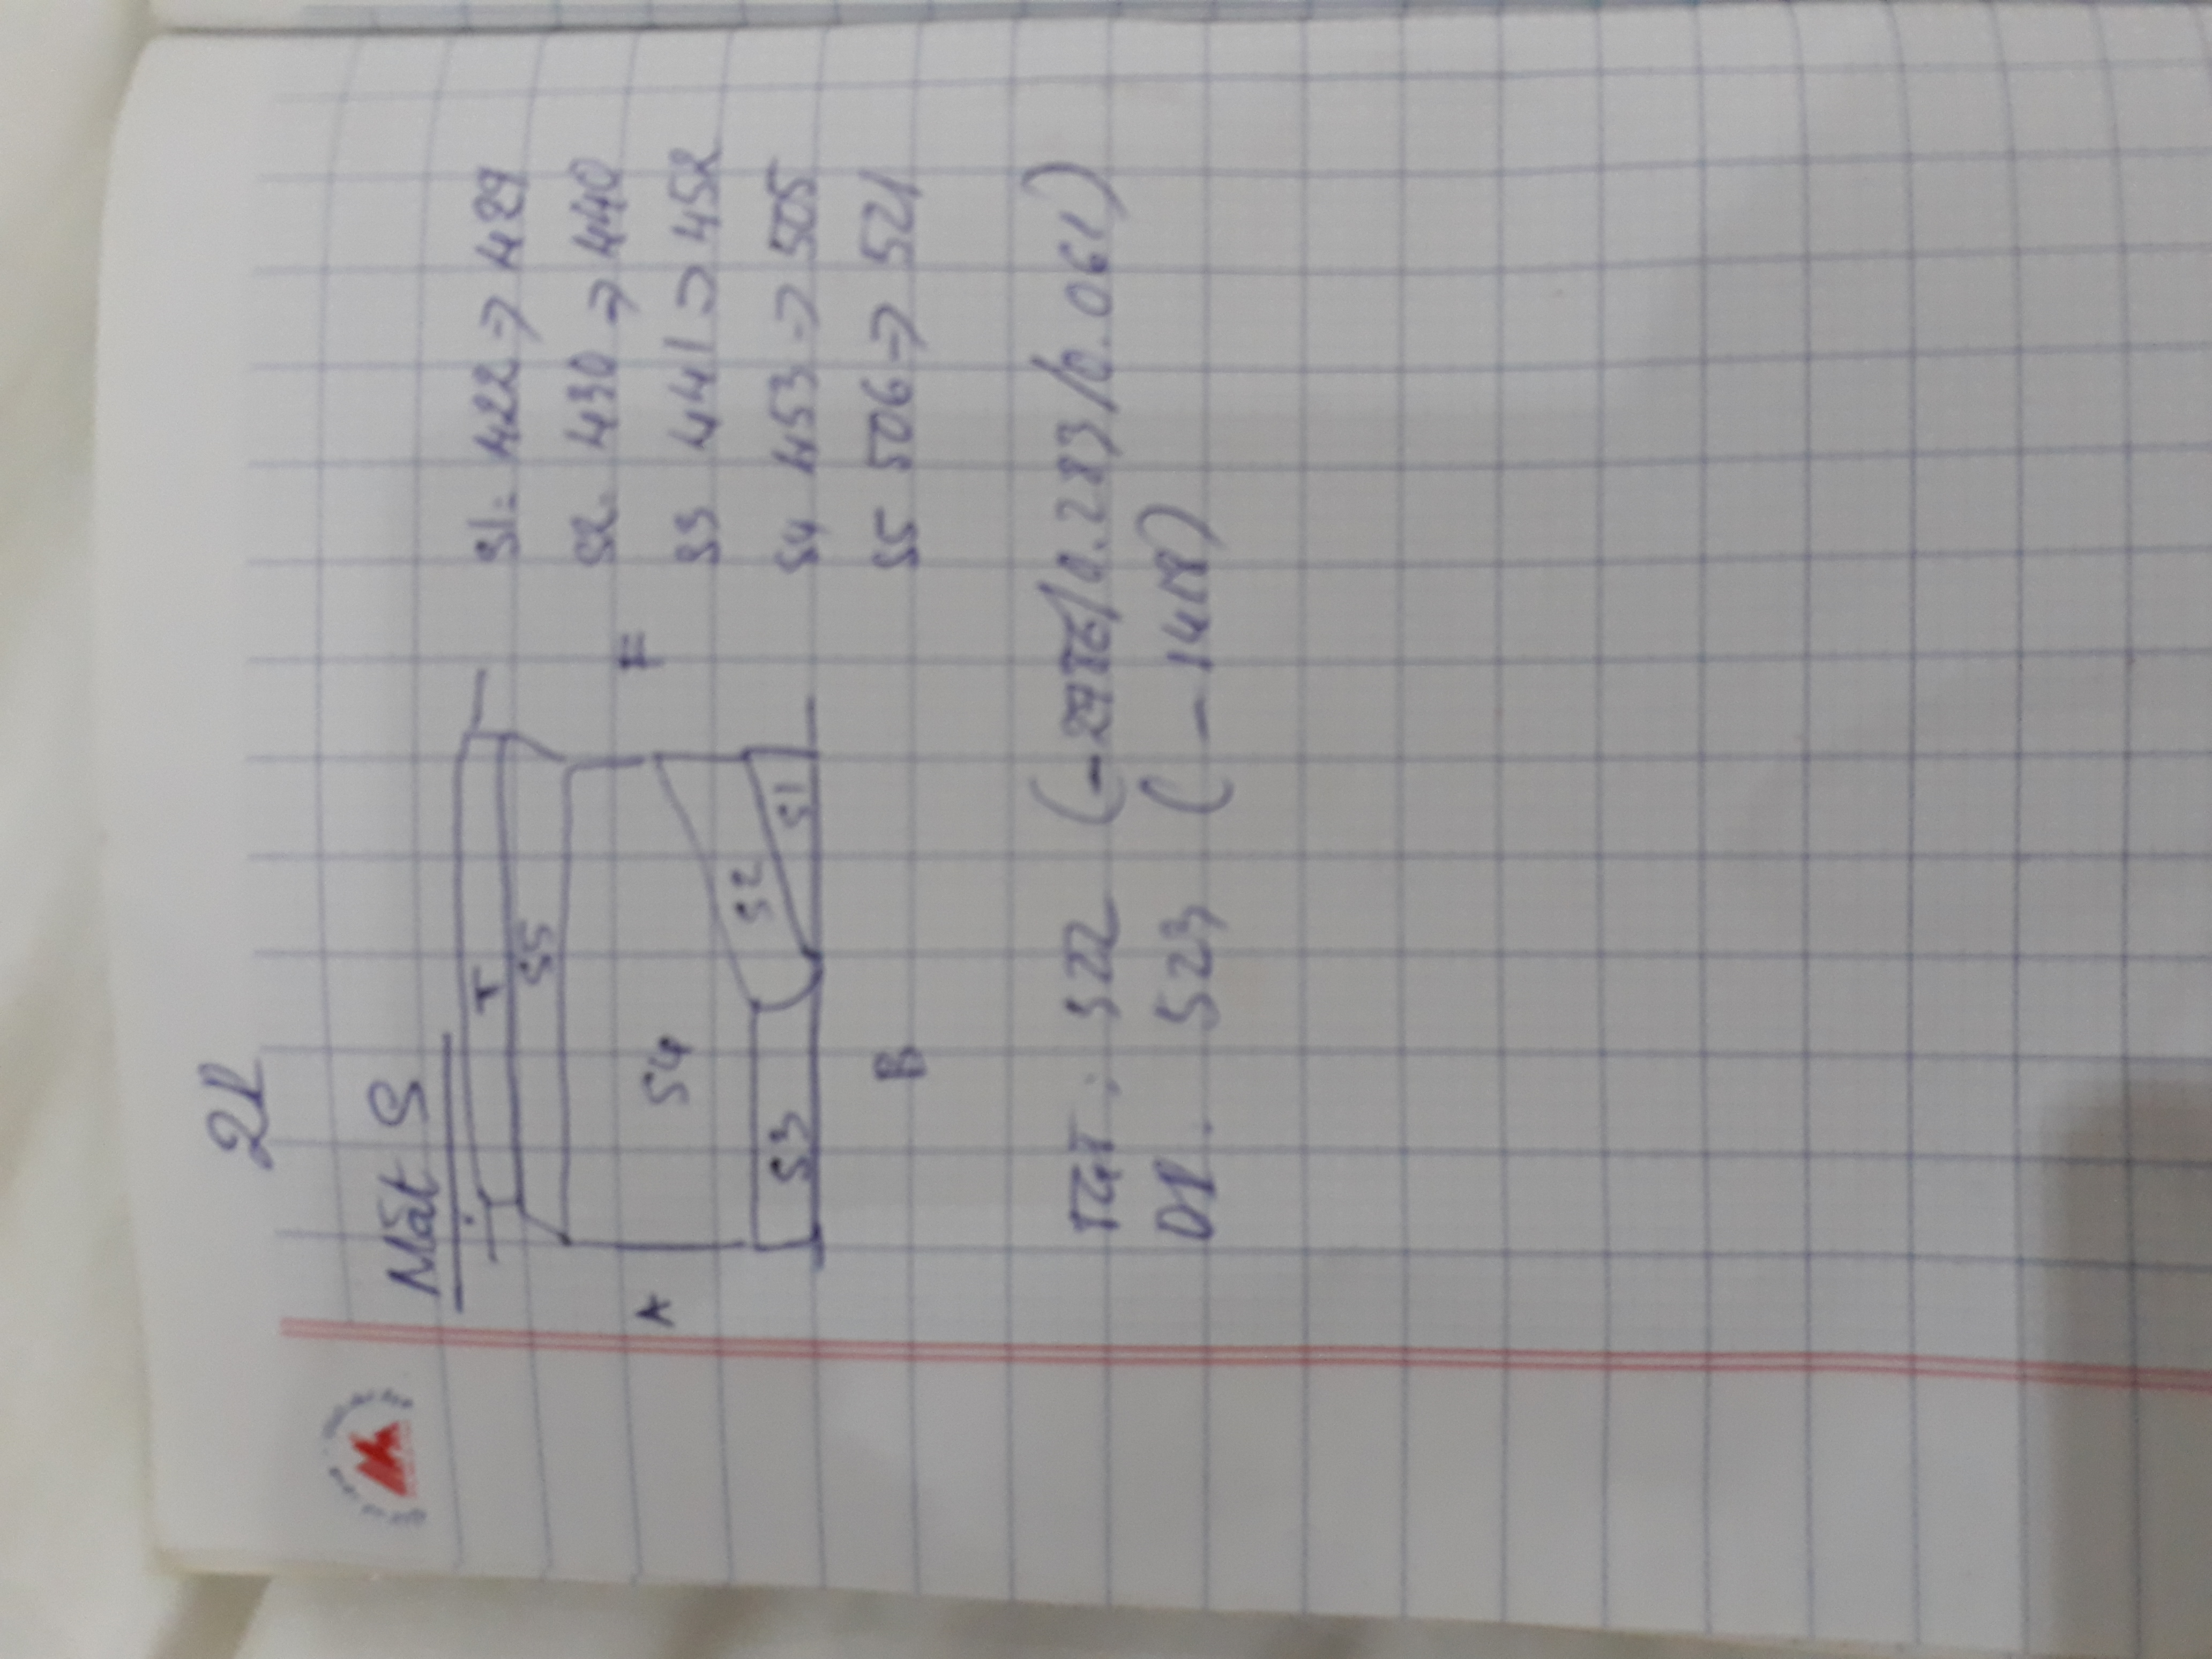 2P
Mặt S
T
S5
A
S4
F
S2
S3
S1
B
S1: 422 → 429
S2. 430 → 440
S3 441 → 452
S4 453 → 505
S5 506 → 521
TGT: 522 (-2986/0.283/0.061)
DP. 523 (-1418)